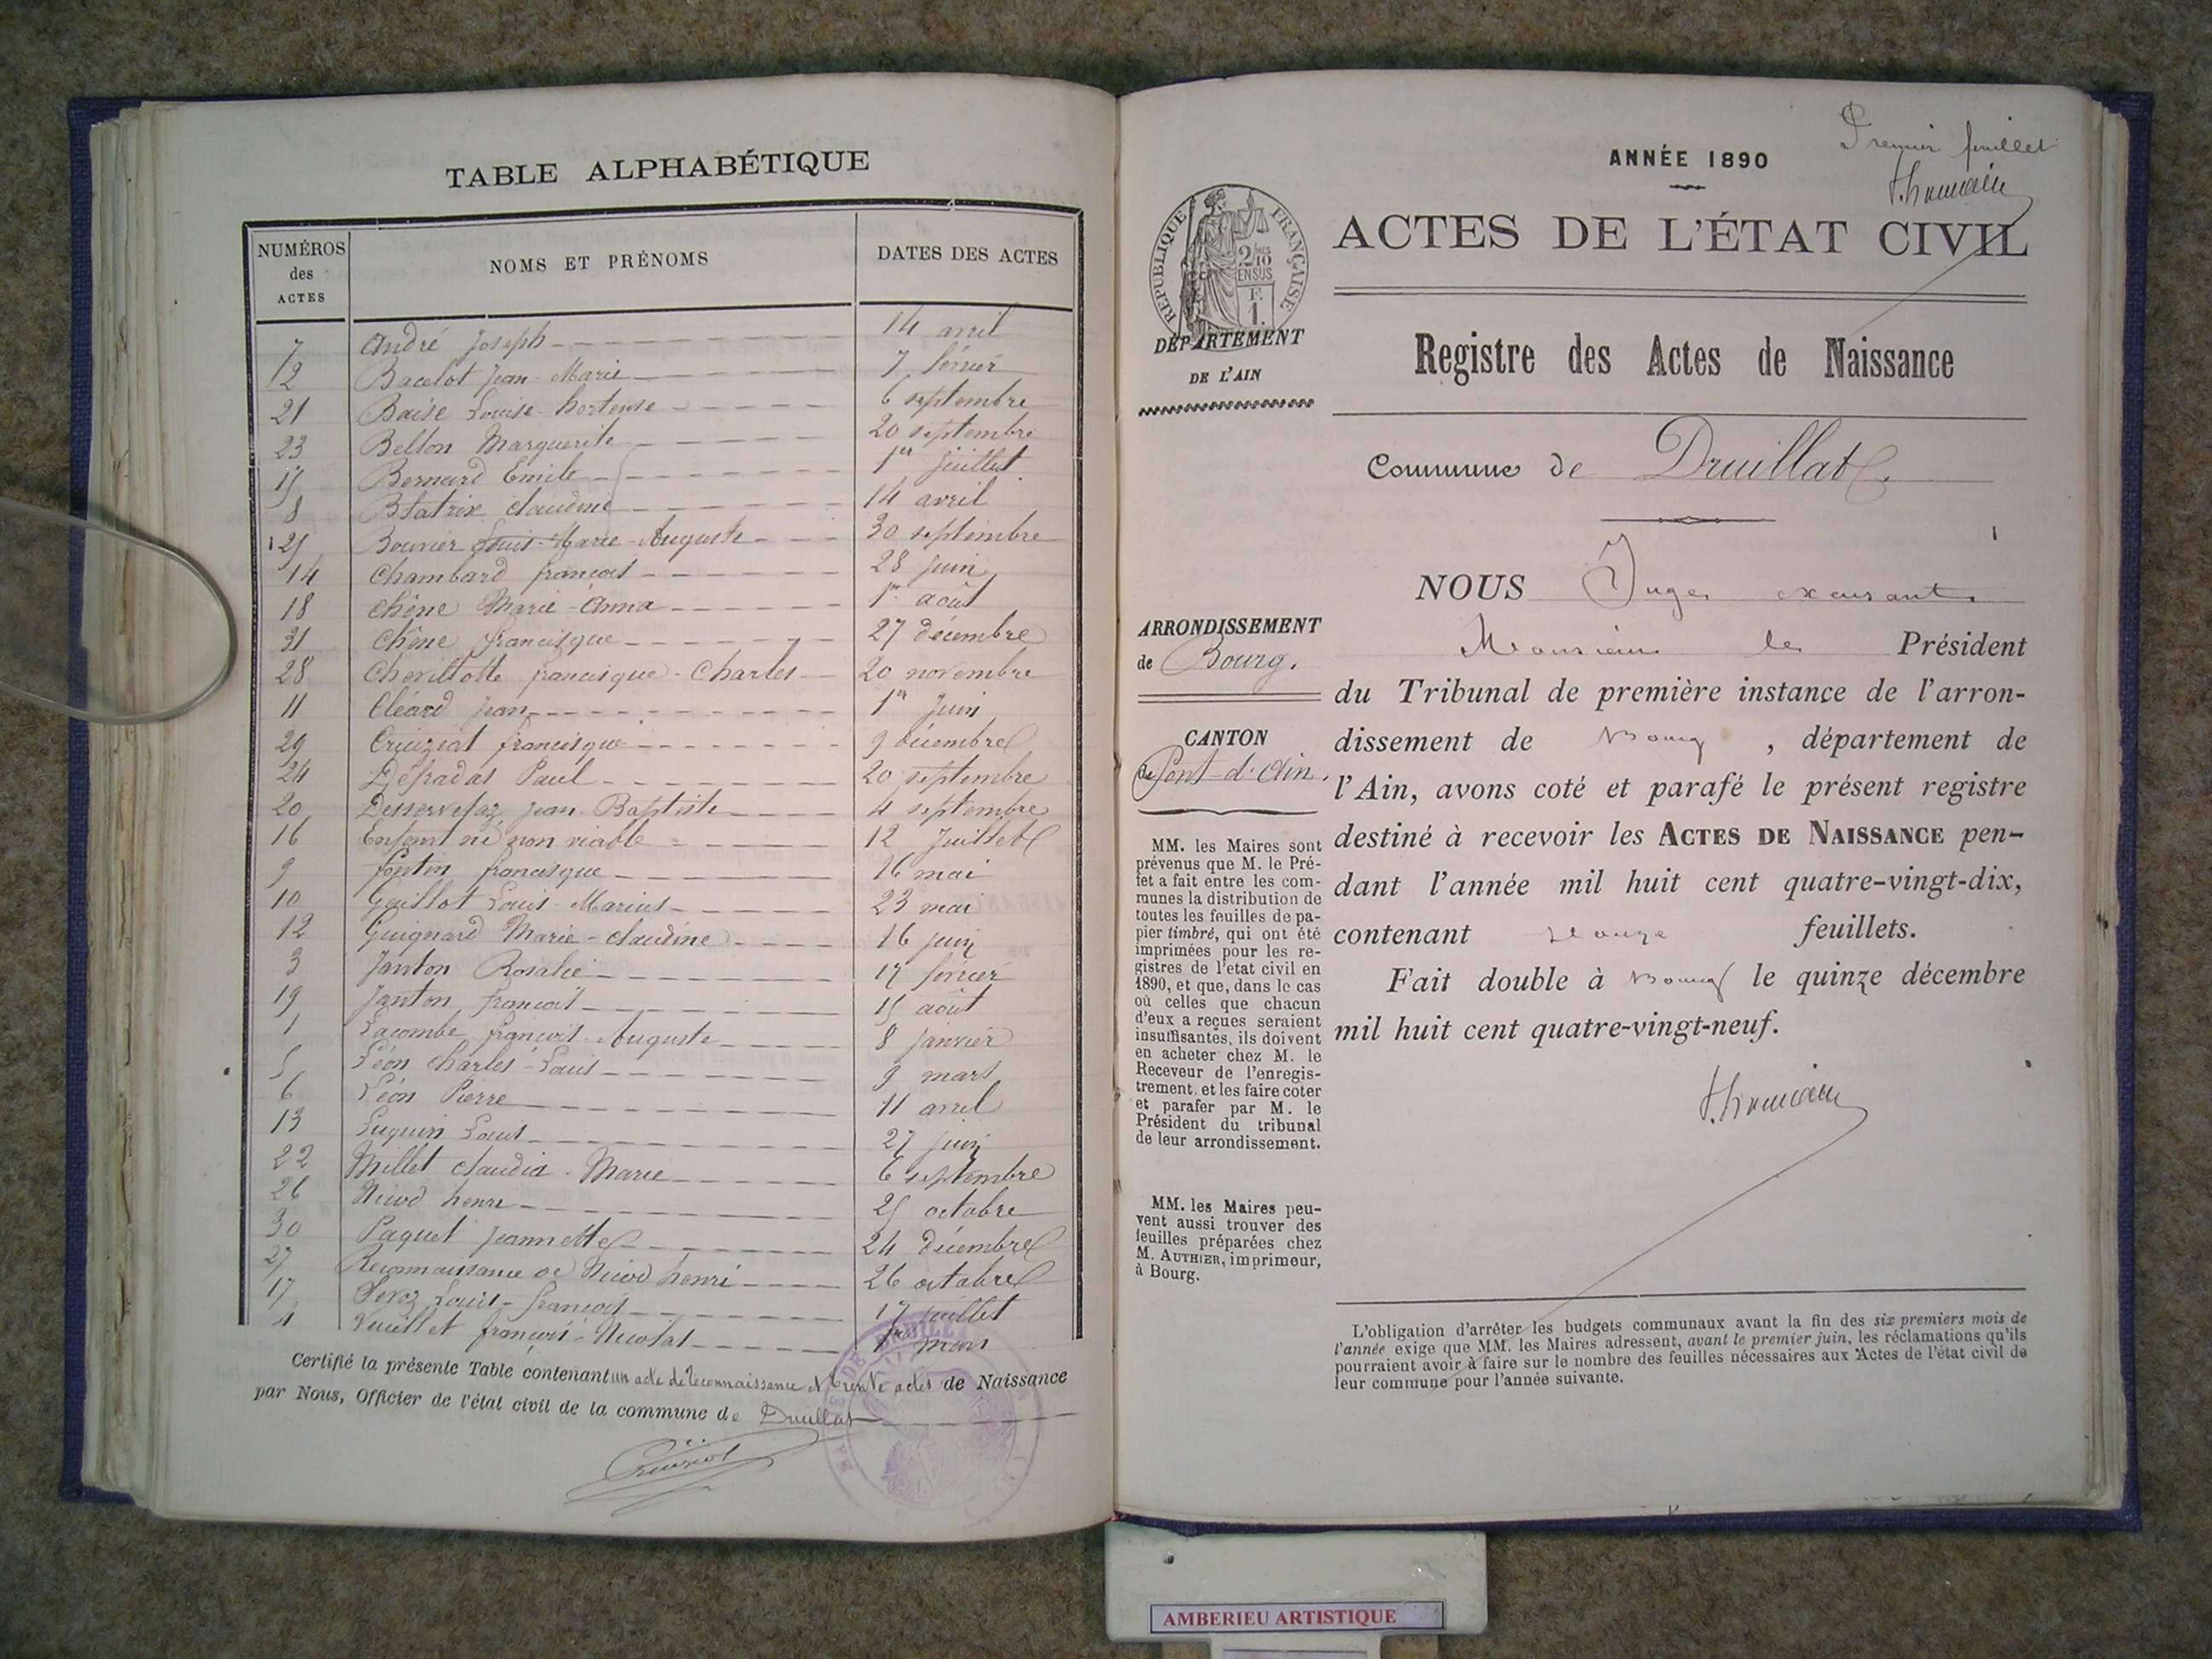 TABLE ALPHABÉTIQUE
NUMÉROS des ACTES | NOMS ET PRÉNOMS | DATES DES ACTES
7 André Joseph 14 avril
2 Bacelot Jean Marie 7 février
21 Louise hortense 6 septembre
23 Belton Marguerite 20 septembre
15 Bernard Emile 1er Juillet
8 Béatrix claudine 14 avril
25 Bouvier Louis-Marie-Auguste 30 septembre
14 Chambard françois 28 juin
18 Chêne Marie-Anna 1er août
31 Chêne francisque 27 décembre
28 Chevillotte francisque-Charles 20 novembre
11 Cléard Jean 1er Juin
29 Cruiziat francisque 9 décembre
24 Défradas Paul 20 septembre
20 Desservetaz jean-Baptiste 4 septembre
16 Enfant né non viable 12 Juillet
9 fontin francisque 16 mai
10 Guillot Louis-Marius 23 mai
12 Guignard Marie-claudine 16 juin
3 Janton Rosalie 17 février
19 Janton françois 15 août
1 Lacombe françois-Auguste 8 janvier
5 Léon Charles-Louis 9 mars
6 Léon Pierre 11 avril
13 Luguin Louis 27 juin
22 Millet claudia-Marie 6 septembre
26 Nicod henri 25 octobre
30 Paquet Jeannette 24 décembre
27 Reconnaissance de Nicod henri 26 octobre
17 Louis-françois 17 juillet
4 Vuillet françois-Nicolas 1er mars
Certifié la présente Table contenant un acte de reconnaissance et trente actes de Naissance
par Nous, Officier de l'état civil de la commune de Druillat
Premier feuillet
ANNÉE 1890
RÉPUBLIQUE FRANÇAISE
2/10 EN SUS
F. 1.
ACTES DE L'ÉTAT CIVIL
DÉPARTEMENT
DE L'AIN
Registre des Actes de Naissance
Commune de Druillat
ARRONDISSEMENT
de Bourg.
CANTON
de Pont-d'Ain.
MM. les Maires sont
prévenus que M. le Pré-
fet a fait entre les com-
munes la distribution de
toutes les feuilles de pa-
pier timbré, qui ont été
imprimées pour les re-
gistres de l'etat civil en
1890, et que, dans le cas
où celles que chacun
d'eux a reçues seraient
insuffisantes, ils doivent
en acheter chez M. le
Receveur de l'enregis-
trement, et les faire coter
et parafer par M. le
Président du tribunal
de leur arrondissement.
MM. les Maires peu-
vent aussi trouver des
feuilles préparées chez
M. AUTHIER, imprimeur,
à Bourg.
NOUS Juge excusant
Monsieur le Président
du Tribunal de première instance de l'arron-
dissement de Bourg, département de
l'Ain, avons coté et parafé le présent registre
destiné à recevoir les ACTES DE NAISSANCE pen-
dant l'année mil huit cent quatre-vingt-dix,
contenant feuillets.
Fait double à Bourg le quinze décembre
mil huit cent quatre-vingt-neuf.
L'obligation d'arrêter les budgets communaux avant la fin des six premiers mois de
l'année exige que MM. les Maires adressent, avant le premier juin, les réclamations qu'ils
pourraient avoir à faire sur le nombre des feuilles nécessaires aux Actes de l'état civil de
leur commune pour l'année suivante.
AMBERIEU ARTISTIQUE